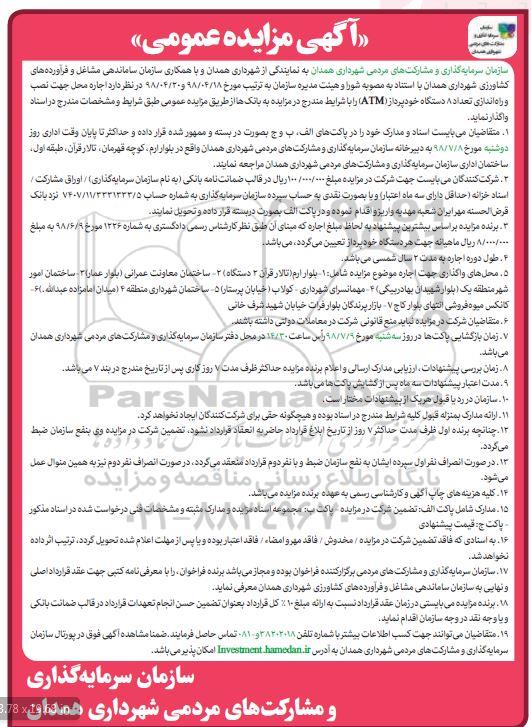 سازمان
سرمایه‌گذاری و
مشارکت‌های مردمی
شهرداری همدان
«آگهی مزایده عمومی»
سازمان سرمایه‌گذاری و مشارکت‌های مردمی شهرداری همدان به نمایندگی از شهرداری همدان و با همکاری سازمان ساماندهی مشاغل و فرآورده‌های
کشاورزی شهرداری همدان با استناد به مصوبه شورا و هیئت مدیره سازمان به ترتیب مورخ ۹۸/۰۴/۱۸ و ۹۸/۰۴/۲۰ در نظر دارد اجاره محل جهت نصب
و راه‌اندازی تعداد ۸ دستگاه خودپرداز (ATM) را با شرایط مندرج در مزایده به بانک‌ها از طریق مزایده عمومی طبق شرایط و مشخصات مندرج در اسناد
واگذار نماید.
۱. متقاضیان می‌بایست اسناد و مدارک خود را در پاکت‌های الف، ب و ج بصورت در بسته و ممهور شده قرار داده و حداکثر تا پایان وقت اداری روز
دوشنبه مورخ ۹۸/۷/۸ به دبیرخانه سازمان سرمایه‌گذاری و مشارکت‌های مردمی شهرداری همدان واقع در بلوار ارم، کوچه قهرمان، تالار قرآن، طبقه اول،
ساختمان اداری سازمان سرمایه‌گذاری و مشارکت‌های مردمی شهرداری همدان مراجعه نمایند.
۲. شرکت‌کنندگان می‌بایست جهت شرکت در مزایده مبلغ ۱۰۰/۰۰۰/۰۰۰ ریال در قالب ضمانت‌نامه بانکی (به نام سازمان سرمایه‌گذاری) / اوراق مشارکت /
اسناد خزانه (حداقل دارای سه ماه اعتبار) و یا بصورت نقدی به حساب سپرده سازمان سرمایه‌گذاری به شماره حساب ۷۶۰۷/۱۱/۳۳۳۱۳۳۳/۵ نزد بانک
قرض‌الحسنه مهر ایران شعبه مهدیه واریز و اقدام نموده و در پاکت الف بصورت دربسته قرار داده و تحویل نمایند.
۳. برنده مزایده بر اساس بیشترین پیشنهاد به لحاظ مبلغ اجاره که مبنای آن طبق نظر کارشناس رسمی دادگستری به شماره ۱۲۲۶ مورخ ۹۸/۶/۹ به مبلغ
۸/۰۰۰/۰۰۰ ریال ماهیانه جهت هر دستگاه خودپرداز تعیین می‌گردد، می‌باشد.
۴. طول دوره اجاره به مدت ۲ سال شمسی می‌باشد.
۵. محل‌های واگذاری جهت اجاره موضوع مزایده شامل: ۱-بلوار ارم(تالار قرآن ۲ دستگاه) ۲- ساختمان معاونت عمرانی (بلوار عمار) ۳-ساختمان امور
شهر منطقه یک (بلوار شهیدان بهادربیگی) ۴-مهمانسرای شهرداری - کولاب (خیابان پرستار) ۵- ساختمان شهرداری منطقه ۴ (میدان امامزاده عبدالله.) ۶-
کانکس میوه‌فروشی انتهای بلوار کاج ۷- بازار پرندگان بلوار فرات خیابان شهید شرف خانی
۶. متقاضیان شرکت در مزایده نباید منع قانونی شرکت در معاملات دولتی داشته باشند.
۷. زمان بازگشایی پاکت‌ها در روز سه‌شنبه مورخ ۹۸/۷/۹ رأس ساعت ۱۴/۳۰ در محل دفتر سازمان سرمایه‌گذاری و مشارکت‌های مردمی شهرداری همدان
می‌باشد.
۸. زمان بررسی پیشنهادات، ارزیابی مدارک ارسالی و اعلام برنده مزایده حداکثر ظرف مدت ۷ روز کاری پس از تاریخ مندرج در بند ۷ می‌باشد.
۹. مدت اعتبار پیشنهادات سه ماه پس از گشایش پاکت‌ها می‌باشد.
۱۰. سازمان در رد یا قبول هر یک از پیشنهادات مختار است.
۱۱. ارائه مدارک بمنزله قبول کلیه شرایط مندرج در اسناد بوده و هیچگونه حقی برای شرکت‌کنندگان ایجاد نخواهد کرد.
۱۲. چنانچه برنده اول ظرف مدت حداکثر ۷ روز از تاریخ ابلاغ قرارداد حاضر به انعقاد قرارداد نشود، تضمین شرکت در مزایده وی بنفع سازمان ضبط
می‌گردد.
۱۳. در صورت انصراف نفر اول سپرده ایشان به نفع سازمان ضبط و با نفر دوم قرارداد منعقد می‌گردد، در صورت انصراف نفر دوم نیز به همین منوال عمل
می‌شود.
۱۴. کلیه هزینه‌های چاپ آگهی و کارشناسی رسمی به عهده برنده مزایده می‌باشد.
۱۵. مدارک شامل پاکت الف: تضمین شرکت در مزایده - پاکت ب: مجموعه اسناد مزایده و مدارک مثبته و مشخصات فنی درخواست شده در اسناد مذکور
- پاکت ج: قیمت پیشنهادی
۱۶. به اسنادی که فاقد تضمین شرکت در مزایده / مخدوش / فاقد مهر و امضاء / فاقد اعتبار بوده و یا پس از مهلت اعلام شده تحویل گردد، ترتیب اثر داده
نخواهد شد.
۱۷. سازمان سرمایه‌گذاری و مشارکت‌های مردمی برگزارکننده فراخوان بوده و مجاز می‌باشد برنده فراخوان، را با معرفی‌نامه کتبی جهت عقد قرارداد اصلی
و نهایی به سازمان ساماندهی مشاغل و فرآورده‌های کشاورزی شهرداری همدان معرفی نماید.
۱۸. برنده مزایده می‌بایستی در زمان عقد قرارداد نسبت به ارائه مبلغ ۱۰٪ کل قرارداد بعنوان تضمین حسن انجام تعهدات قرارداد در قالب ضمانت بانکی
و یا وجه نقد در وجه سازمان اقدام نماید.
۱۹. متقاضیان می‌توانند جهت کسب اطلاعات بیشتر با شماره تلفن ۳۸۲۰۲۰۱۸-۰۸۱ تماس حاصل فرمایند. ضمنا مشاهده آگهی فوق در پورتال سازمان
سرمایه‌گذاری و مشارکت‌های مردمی شهرداری همدان به آدرس Investment.hamedan.ir امکان پذیر می‌باشد.
ParsNamad
پایگاه اطلاع رسانی مناقصه و مزایده
۰۲۱-۸۸۳۴۹۶۷۰-۵
سازمان سرمایه‌گذاری
و مشارکت‌های مردمی شهرداری همدان